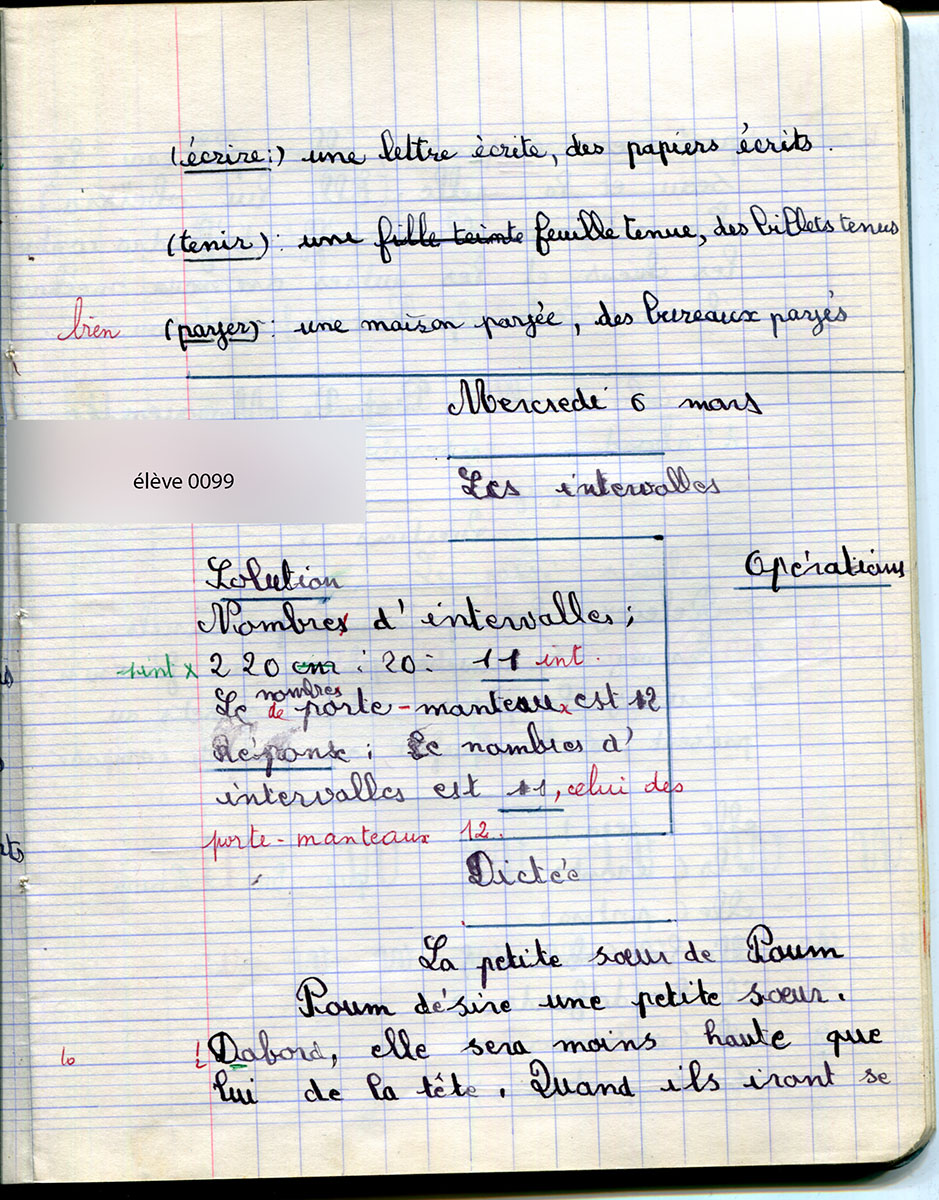 (écrire:) une lettre écrite, des papiers écrits.
(tenir): une fille teinte feuille tenue, des billets tenus
bien (payer): une maison payée, des bureaux payés
Mercredi 6 mars
élève 0099
Les intervalles
Solution
Opérations
Nombres d'intervalles;
220 cm : 20 = 11 int.
nombres
Le de porte-manteaux est 12
Réponse : Le nombres d'
intervalles est 11, celui des
porte-manteaux 12.
Dictée
La petite sœur de Poum
Poum désire une petite sœur.
10 1/2 Dabord, elle sera moins haute que
lui de la tête. Quand ils iront se